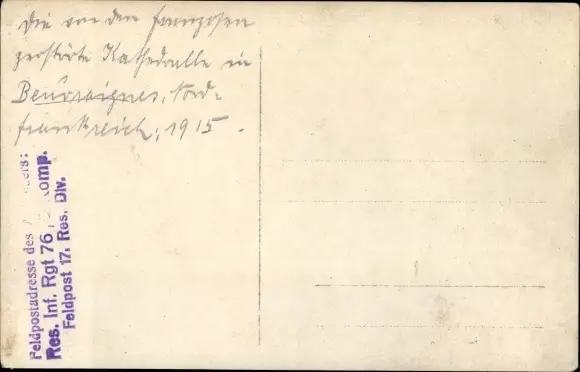 Die von den Franzosen
zerstörte Kathedralle in
Beuvraignes, Nord-
frankreich, 1915.
Feldpostadresse des
Res. Inf. Rgt 76, Komp.
Feldpost 17. Res. Div.